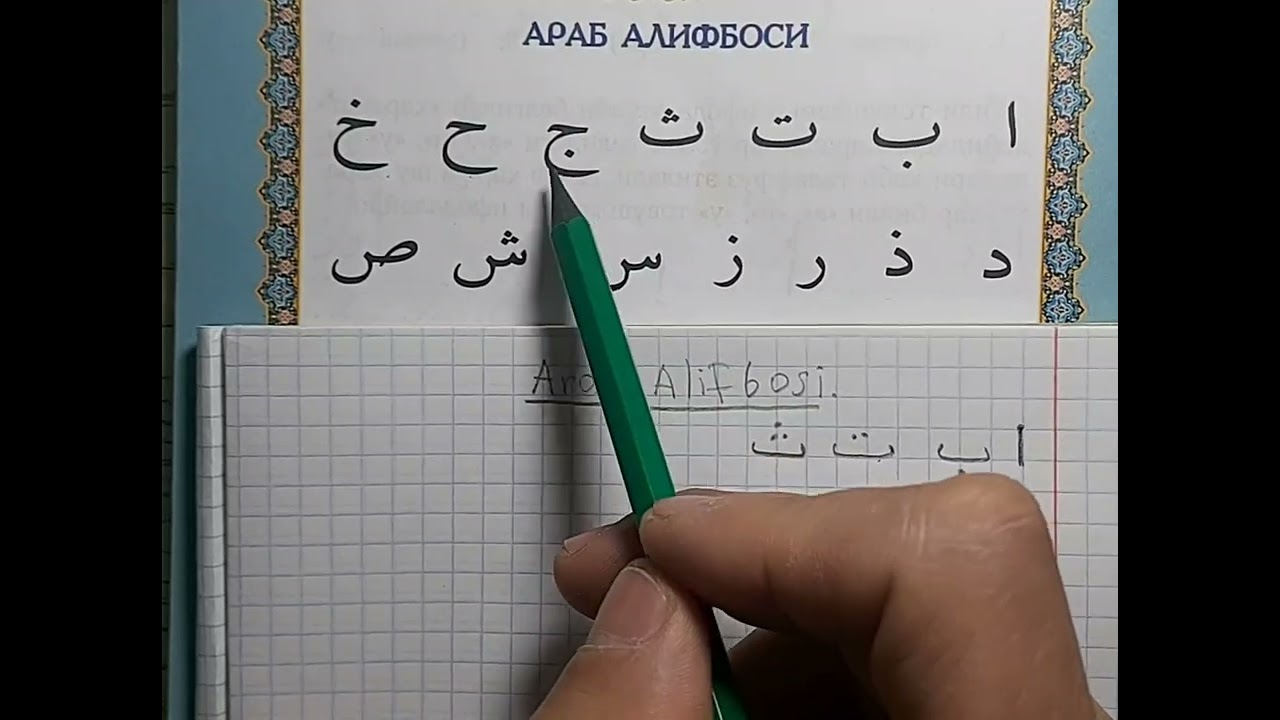 АРАБ АЛИФБОСИ
ا ب ت ث ج ح خ
د ذ ر ز س ش ص
Alifbosi.
ا ب ت ث